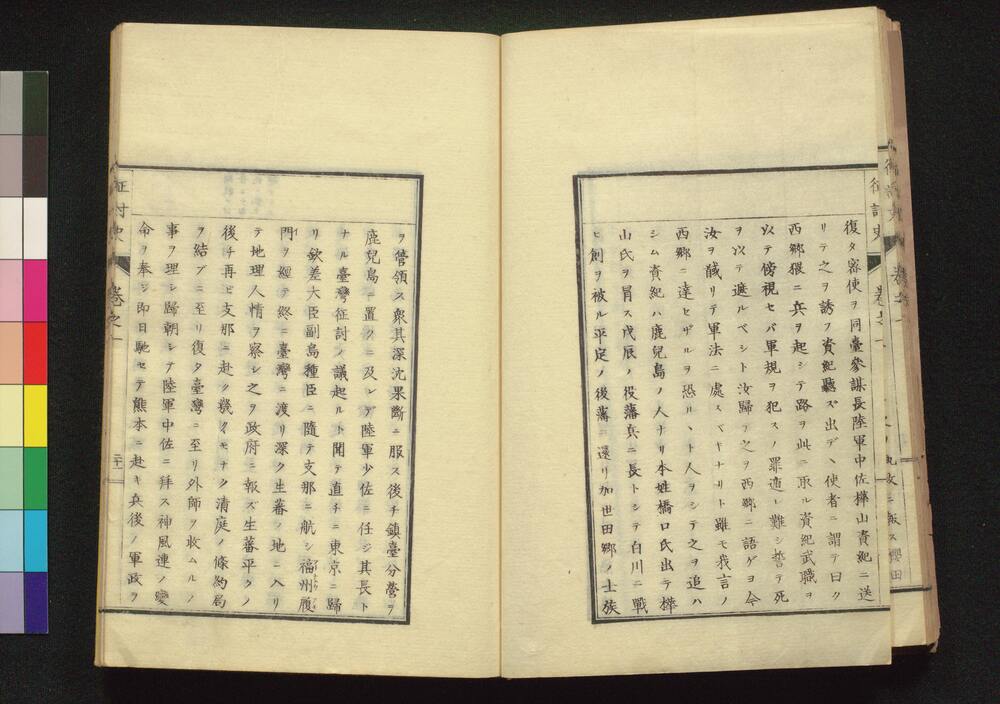 復タ密使ヲ同臺參謀長陸軍中佐樺山資紀ニ送
リテ之ヲ誘フ資紀聽ズ出デヽ使者ニ謂テ曰ク
西郷猥ニ兵ヲ起シテ路ヲ此ニ取ル資紀武職ヲ
以テ傍視セバ軍規ヲ犯スノ罪遁レ難シ誓テ死
ヲ以テ遮ルベシト汝歸テ之ヲ西郷ニ語ゲヨ今
汝ヲ馘リテ軍法ニ處スベキナリト雖モ我言ノ
西郷ニ達セザルヲ恐ルヽト人ヲシテ之ヲ追ハ
シム資紀ハ鹿兒島ノ人ナリ本姓橋口氏出テ樺
山氏ヲ冒ス戊辰ノ役藩兵ニ長トシテ白川ニ戰
ヒ創ヲ被ル平定ノ後藩ニ還リ加世田郷ノ士族
征討史
卷之一
ヲ管領ス衆其深沈果斷ニ服ス後チ鎮臺分營ヲ
鹿兒島ニ置クニ及レデ陸軍少佐ニ任ジ其長ト
ナル臺灣征討ノ議起ルト聞テ直チニ東京ニ歸
リ欽差大臣副島種臣ニ隨テ支那ニ航シ福州厦
門ヲ經テ終ニ臺灣ニ渡リ深ク生蕃ノ地ニ入リ
テ地理人情ヲ察シ之ヲ政府ニ報ズ生蕃平クノ
後チ再ビ支那ニ赴ク幾イモナク清庭ノ條約局
ヲ結ブニ至リ復タ臺灣ニ至リ外師ヲ收ムルノ
事ヲ理シ歸朝シテ陸軍中佐ニ拜ス神風連ノ變
命ヲ奉シ即日馳セテ熊本ニ赴キ兵後ノ軍政ヲ
征討史
卷之一
二十一